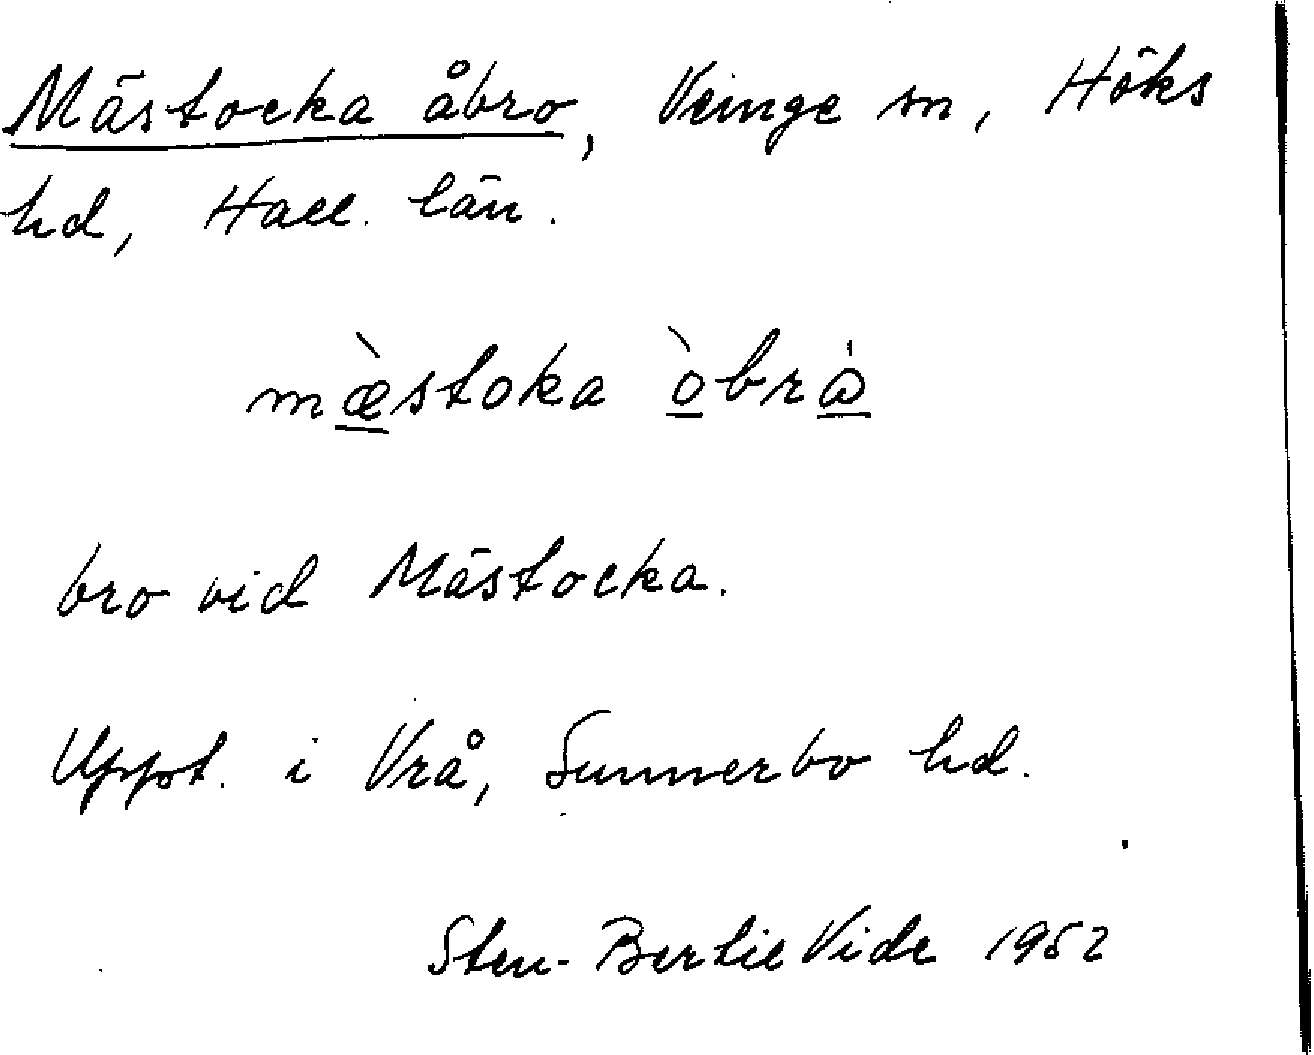 Mästocka åbro, Veinge sn, Höks
hd, Hall. län.
mæ̀stoka òbrȯ̀
bro vid Mästocka.
Uppt. i Vrå, Sunnerbo hd.
Sten-Bertil Vide 1952